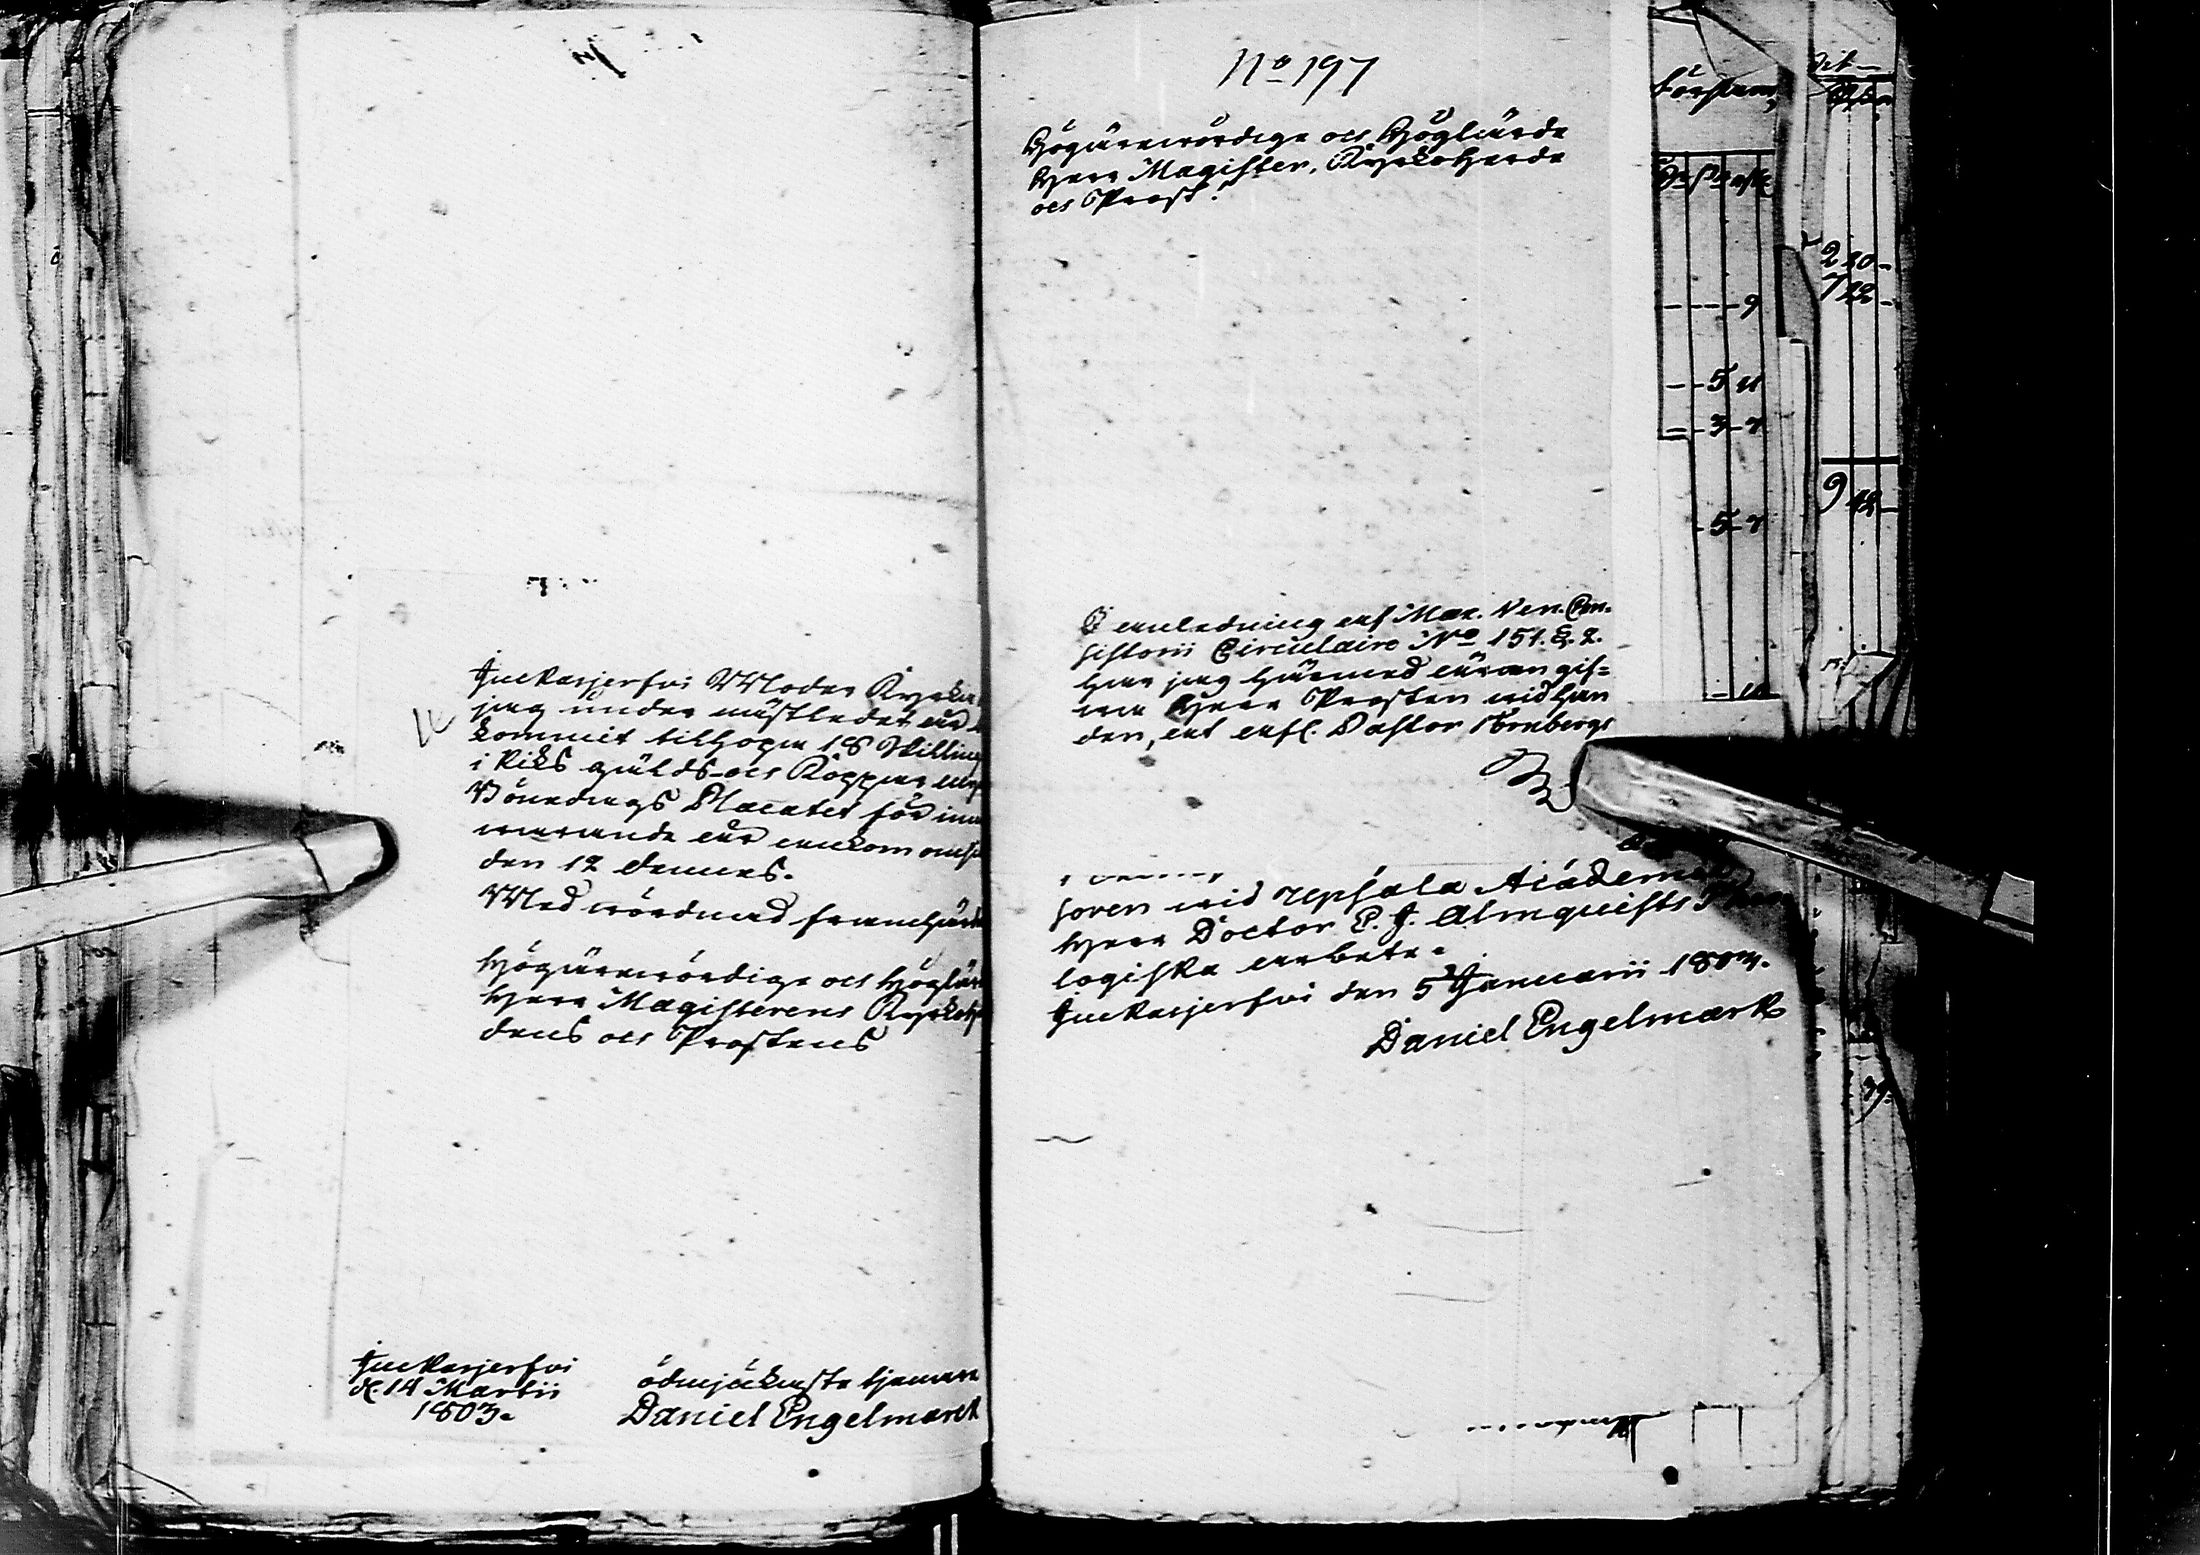 Juckasjerfvi Moder Kyrka
jag under nästledet år
kommit tilhopa 18 Skilling
i Riks gälds och Koppar
Bönedags Placatet för inne
warande år ankom
den 12 dennes.
Med wördnad framhärda
Högärewördige och Höglär
Herr Magisterens Kyrkoh
dens och Prostens
Juckasjerfvi
d. 14 Martii
1803.
ödmjukaste tjenare
Daniel Engelmark
No 197
Högärewördige och Höglärde
Herr Magister, Kyrkoherde
och Prost!
I anledning af Max. Ven. Con-
sistorii Circulaire No 151. §. 2.
har jag härmed äran gif-
wa Herr Prosten wid han
den, at afl. Pastor Törnbergs
soren wid Upsala Academ
Herr Doctor E. J. Almquists Theo
logiska arbete.
Juckasjerfvi den 5 Januarii 1803.
Daniel Engelmark
9
5 11
3 7
5 7
2 20
7 22
9 42